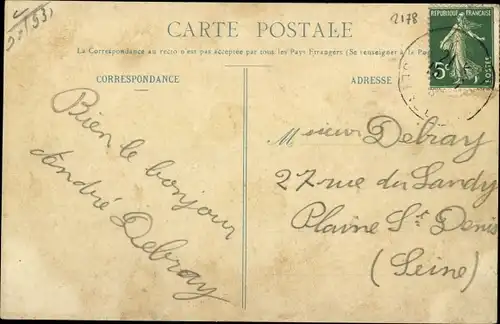 2178
CARTE POSTALE
La Correspondance au recto n'est pas acceptée par tous les Pays Étrangers (Se renseigner à la Pos
CORRESPONDANCE
ADRESSE
RÉPUBLIQUE FRANÇAISE
5c
POSTES
Bien le bonjour
d'André Debray
Msieur Debray
27 rue du Landy
Plaine St Denis
(Seine)